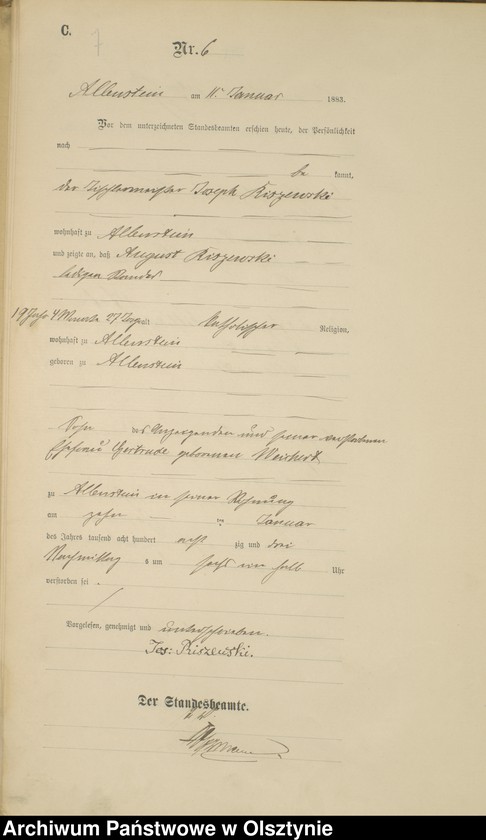 C.
7
Nr. 6
Allenstein am 11. Januar 1883.
Vor dem unterzeichneten Standesbeamten erschien heute, der Persönlichkeit
nach
be kannt,
der Tischlermeister Joseph Riszewski
wohnhaft zu Allenstein
und zeigte an, daß August Riszewski
ledigen Standes
19 Jahr 4 Monate 27 Tage alt Katholischer Religion,
wohnhaft zu Allenstein
geboren zu Allenstein
Sohn des Anzeigenden und seiner verstorbenen
Ehefrau Gertrude geborenen Weichert
zu Allenstein in seiner Wohnung
am zehn ten Januar
des Jahrs tausend acht hundert acht zig und drei
Nachmittag s um sechs ein halb Uhr
verstorben sei.
Vorgelesen, genehmigt und unterschrieben.
Jos: Riszewski.
Der Standesbeamte.
Archiwum Państwowe w Olsztynie